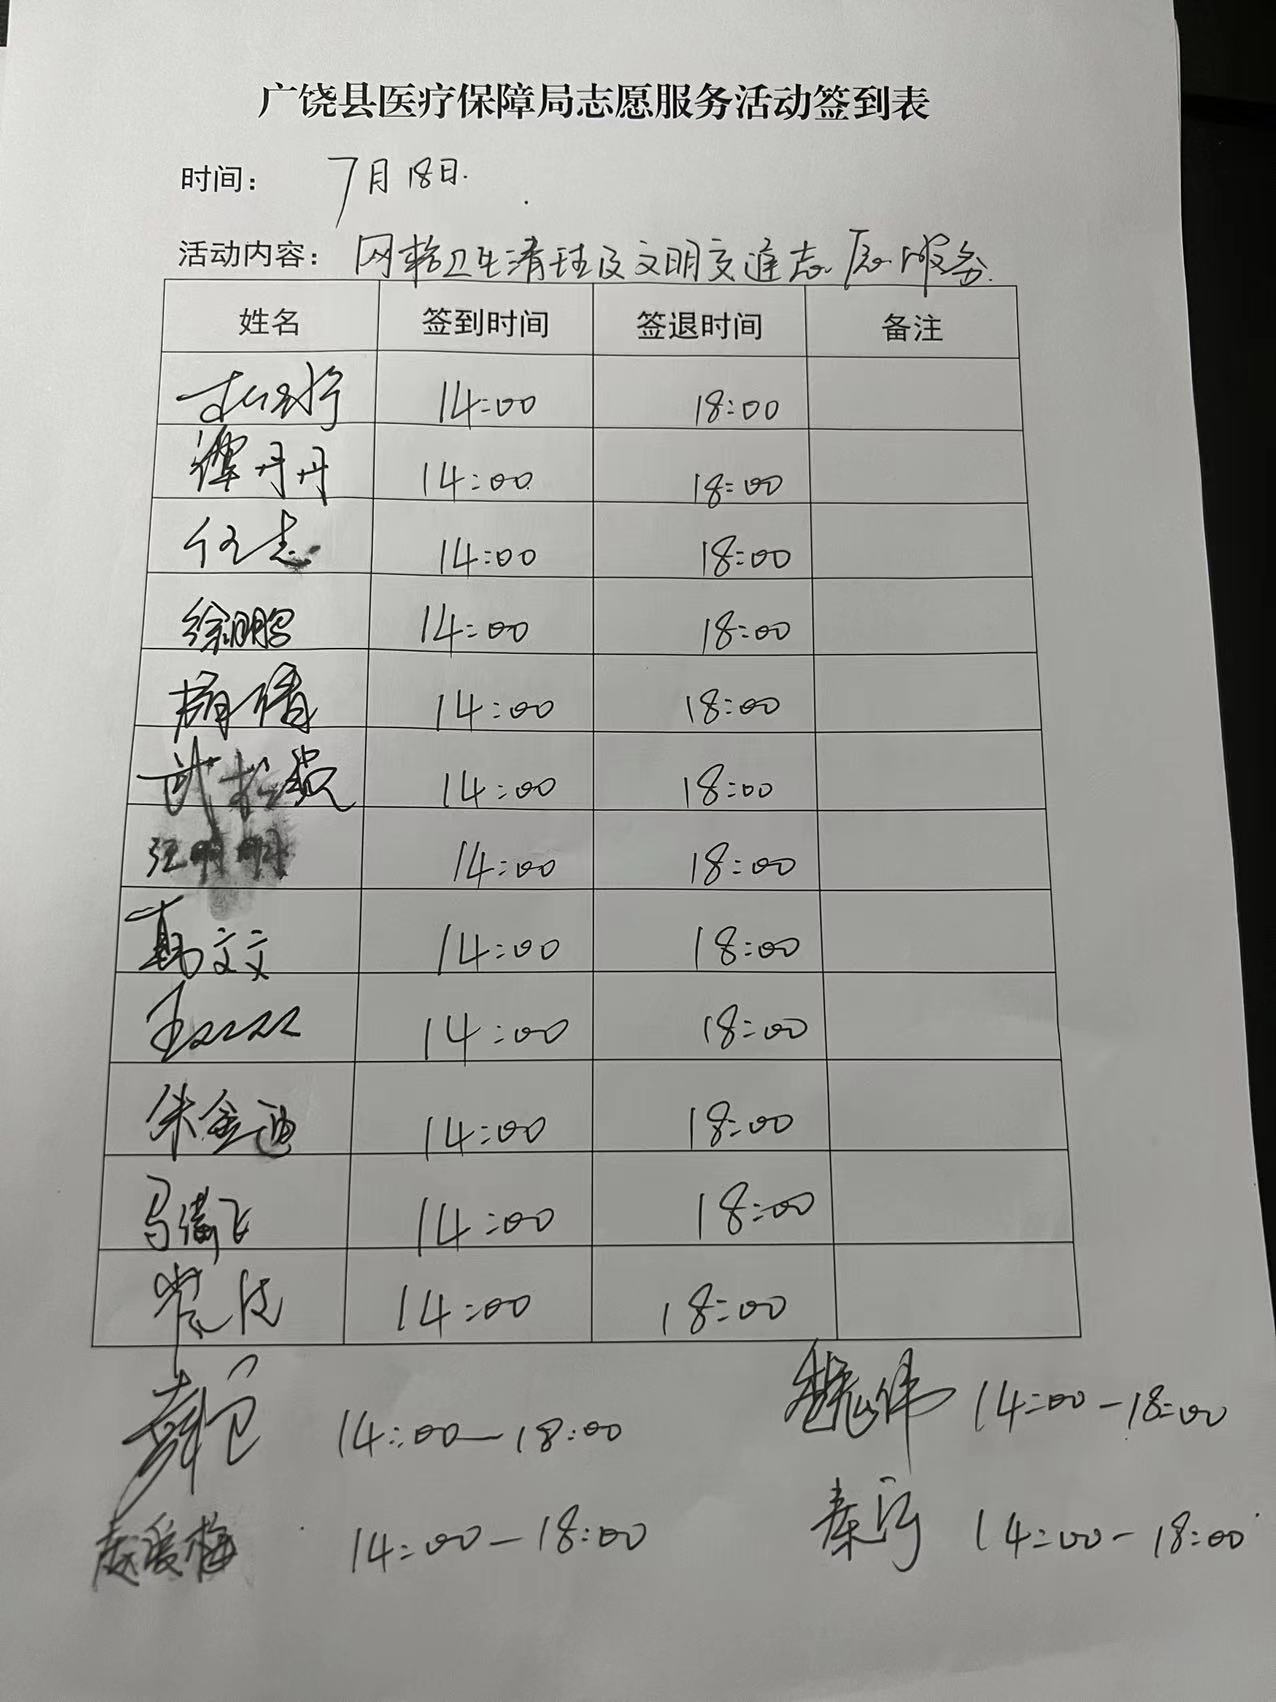 广饶县医疗保障局志愿服务活动签到表
时间： 7月18日.
活动内容： 网格卫生清理及文明交通志愿服务.
姓名 签到时间 签退时间 备注
14:00 18:00
谭丹丹 14:00 18:00
任志 14:00 18:00
徐鹏 14:00 18:00
倩 14:00 18:00
武 14:00 18:00
汪明明 14:00 18:00
葛文文 14:00 18:00
王 14:00 18:00
朱金迪 14:00 18:00
马倩飞 14:00 18:00
14:00 18:00
14:00-18:00 魏伟 14:00-18:00
赵爱梅 14:00-18:00 秦 14:00-18:00